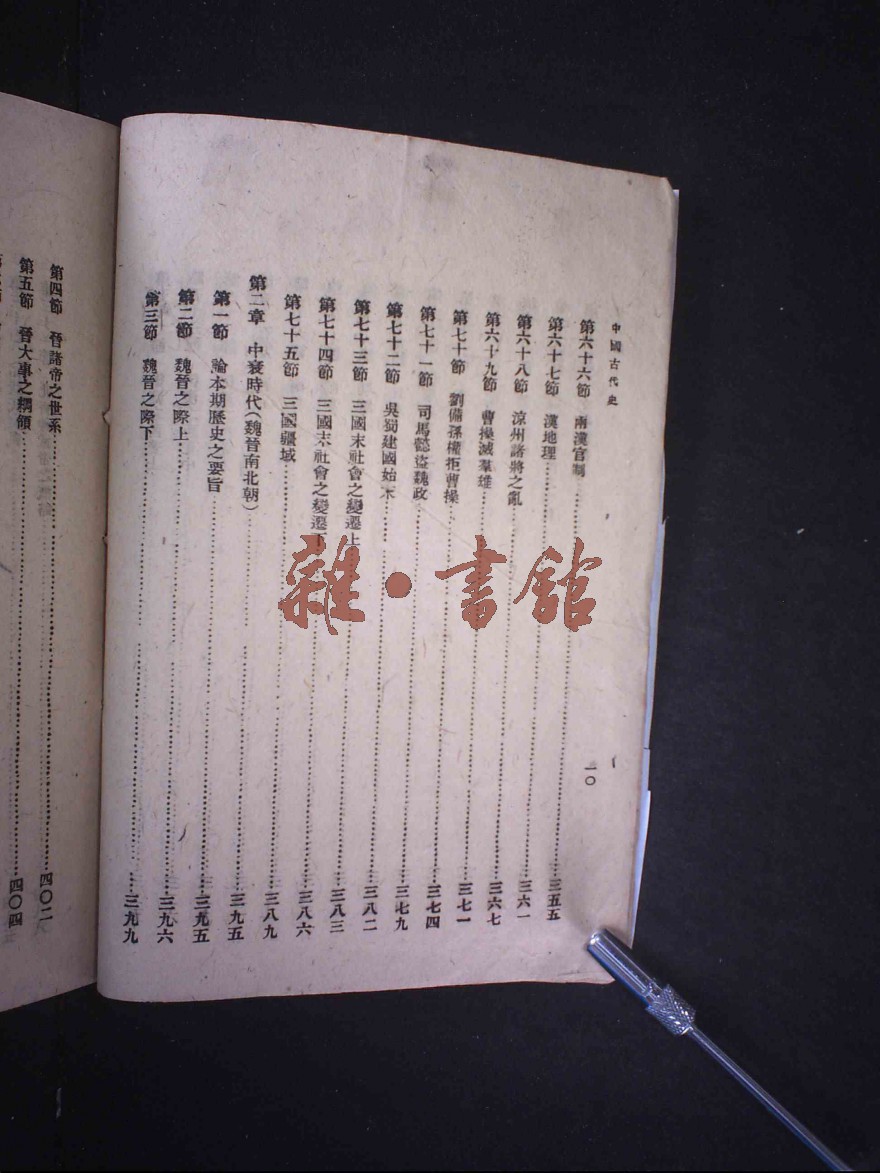 中國古代史
一〇
第六十六節 兩漢官制……三五五
第六十七節 漢地理……三六一
第六十八節 涼州諸將之亂……三六七
第六十九節 曹操滅羣雄……三七一
第七十節 劉備孫權拒曹操……三七四
第七十一節 司馬懿盜魏政……三七九
第七十二節 吳蜀建國始末……三八二
第七十三節 三國末社會之變遷上……三八三
第七十四節 三國末社會之變遷下……三八六
第七十五節 三國疆域……三八九
第二章 中衰時代(魏晉南北朝)……三九五
第一節 論本期歷史之要旨……三九五
第二節 魏晉之際上……三九六
第三節 魏晉之際下……三九九
第四節 晉諸帝之世系……四〇二
第五節 晉大事之綱領……四〇四
雜·書館